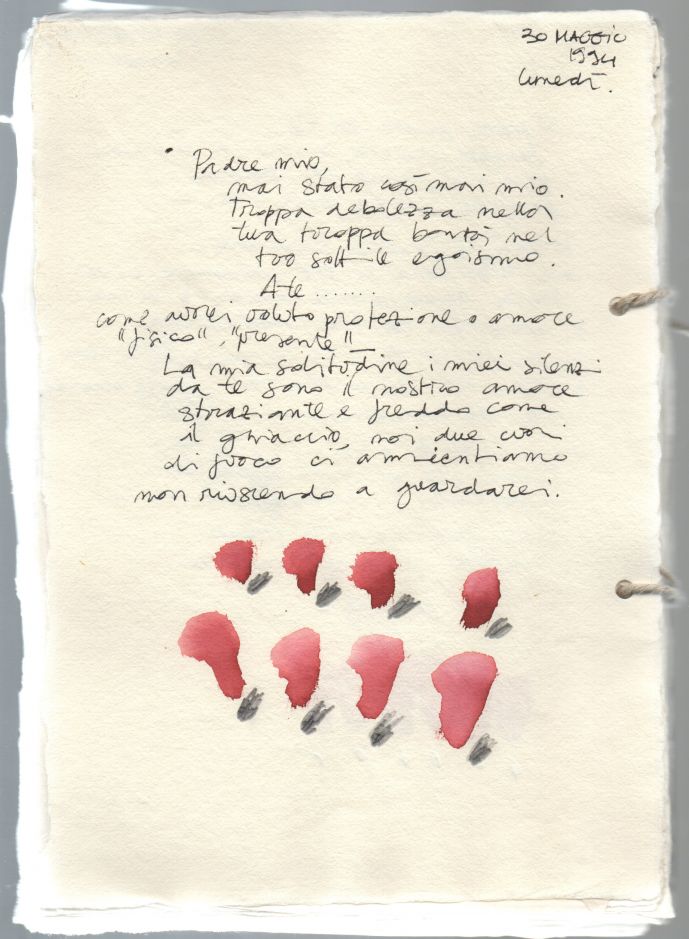 30 MAGGIO
1994
lunedì.
Padre mio,
mai stato così mai mio.
Troppa debolezza nella
tua troppa bontà nel
tuo sottile egoismo.
A te .......
come avrei voluto protezione o amore
"fisico", "presente"
La mia solitudine i miei silenzi
da te sono il nostro amore
straziante e freddo come
il ghiaccio, noi due cuori
di fuoco ci annientiamo
non riuscendo a guardarci.